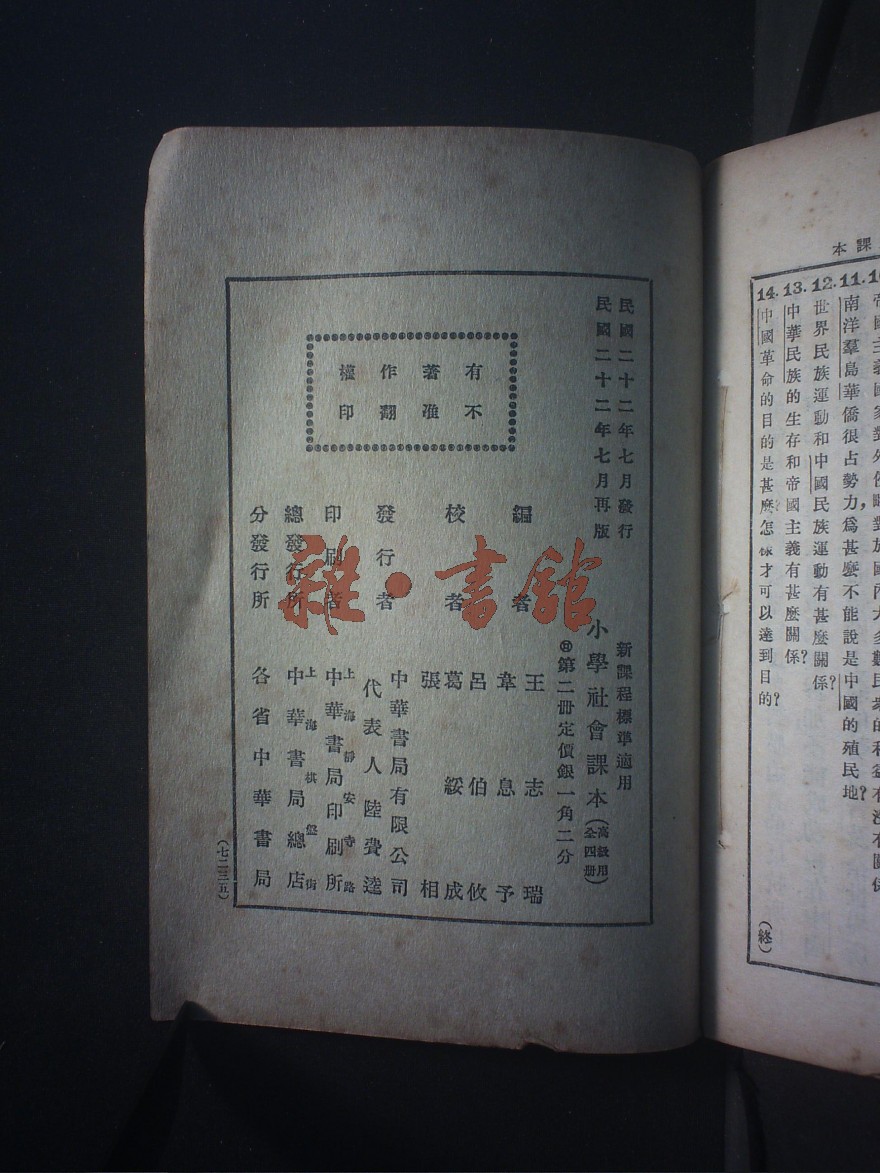 課本
11.南洋羣島華僑很占勢力,爲甚麽不能說是中國的殖民地?
12.世界民族運動和中國民族運動有甚麽關係?
13.中華民族的生存和帝國主義有甚麽關係?
14.中國革命的目的是甚麽?怎樣才可以達到目的?
(終)
民國二十二年七月發行
民國二十二年七月再版
有著作權
不准翻印
新課程標準適用
小學社會課本(高級用全四册)
第二册定價銀一角二分
編者
王志瑞
章息予
校者
呂伯攸
葛綏成
張相
發行者
中華書局有限公司
代表人陸費逵
印刷者
上海靜安寺路
中華書局印刷所
總發行所
上海棋盤街
中華書局總店
分發行所
各省中華書局
(七二三五)
雜·書館